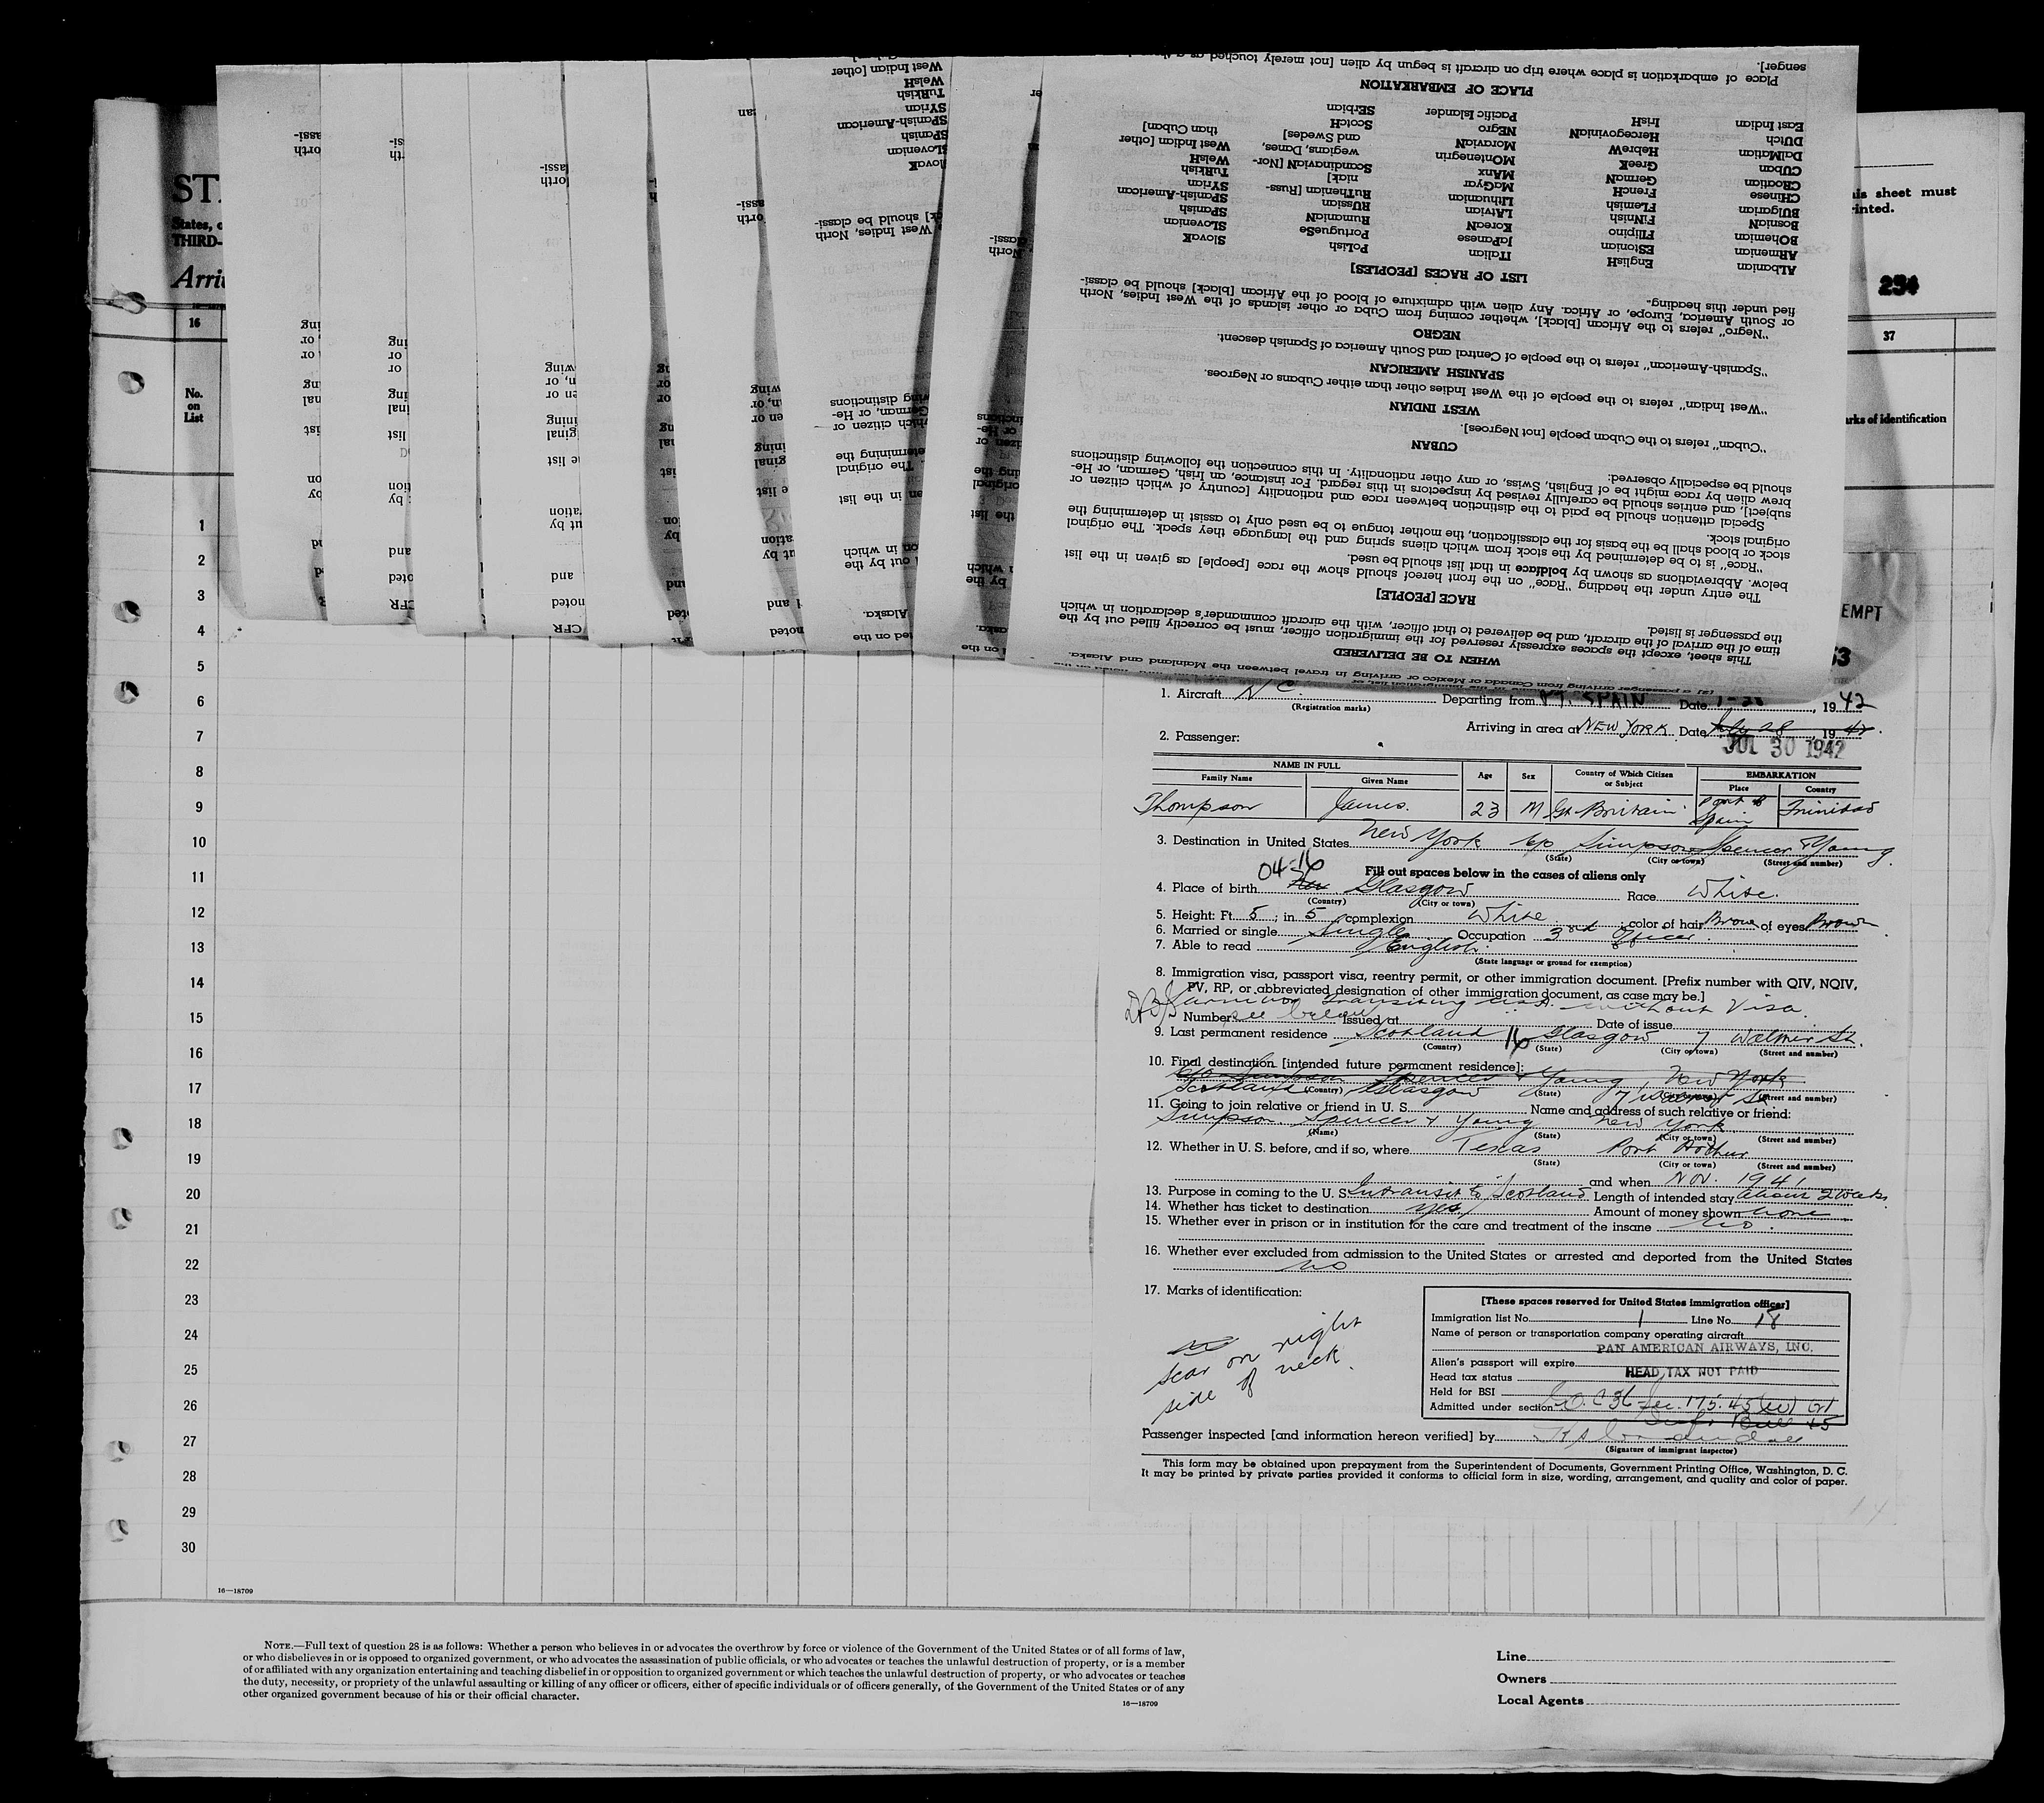 ST
States, o
THIRD-
Arri
16
No.
on
List
his sheet must
rinted.
254
37
rks of identification
EMPT
53
Place of embarkation is place where trip on aircraft is begun by alien [not merely touched
senger].
PLACE OF EMBARKATION
East Indian IrisH Pacific Islander SErbian
DUtch HercegoviniaN NEgro ScotcH than Cuban]
DalMatian HebreW MoraviaN and Swedes] West Indian [other
CUban GreeK MOntenegrin wegians, Danes, WelsH
CRoatian GermaN MAnx Scandinavian [Nor- TuRkish
CHinese FrencH MaGyar nick] SYrian
BUlgarian FLemish LIthuanian RuThenian [Russ- SPanish-American
BosniaN FiNnish LAtvian RUssian SPanish
BOhemian Filipino KoreaN RumaniaN SLovenian
ARmenian EStonian JaPanese PortugueSe SlovaK
ALbanian EnglisH ITalian PoLish
LIST OF RACES [PEOPLES]
"Negro" refers to the African [black], whether coming from Cuba or other islands of the West Indies, North
or South America, Europe, or Africa. Any alien with admixture of blood of the African [black] should be classi-
fied under this heading.
NEGRO
"Spanish-American" refers to the people of Central and South America of Spanish descent.
SPANISH AMERICAN
"West Indian" refers to the people of the West Indies other than either Cubans or Negroes.
WEST INDIAN
"Cuban" refers to the Cuban people [not Negroes].
CUBAN
Special attention should be paid to the distinction between race and nationality [country of which citizen or
subject], and entries should be carefully revised by inspectors in this regard. For instance, an Irish, German, or He-
brew alien by race might be of English, Swiss, or any other nationality. In this connection the following distinctions
should be especially observed:
"Race" is to be determined by the stock from which aliens spring and the language they speak. The original
stock or blood shall be the basis for the classification, the mother tongue to be used only to assist in determining the
original stock.
The entry under the heading "Race" on the front hereof should show the race [people] as given in the list
below. Abbreviations as shown by boldface in that list should be used.
RACE [PEOPLE]
This sheet, except the spaces expressly reserved for the immigration officer, must be correctly filled out by the
time of the arrival of the aircraft, and be delivered to that officer, with the aircraft commander's declaration in which
the passenger is listed.
WHEN TO BE DELIVERED
1. Aircraft N C. Departing from PT. SPAIN Date 7-28, 1942
(Registration marks)
Arriving in area at NEW YORK Date July 28, 1942.
JUL 30 1942
2. Passenger:
NAME IN FULL Age Sex Country of Which Citizen or Subject EMBARKATION
Family Name Given Name Place Country
Thompson James. 23 M Gt Britain Port of Spain Trinidad
3. Destination in United States New York c/o Simpson Spencer & Young.
(State) (City or town) (Street and number)
04-16
Fill out spaces below in the cases of aliens only
4. Place of birth Glasgow Race White.
(Country) (City or town)
5. Height: Ft. 5; in 5 complexion White; color of hair Brown of eyes Brown
6. Married or single Single Occupation 3rd Officer.
7. Able to read English.
(State language or ground for exemption)
8. Immigration visa, passport visa, reentry permit, or other immigration document. [Prefix number with QIV, NQIV,
PV, RP, or abbreviated designation of other immigration document, as case may be.]
transiting without Visa.
Number see below Issued at Date of issue
9. Last permanent residence Scotland 16 Glasgow 7 Walmer St.
(Country) (State) (City or town) (Street and number)
10. Final destination [intended future permanent residence]:
c/o Simpson Spencer & Young, New York
Scotland Glasgow 7 Walmer St.
(Country) (State) (City or town) (Street and number)
11. Going to join relative or friend in U. S. Name and address of such relative or friend:
Simpson, Spencer & Young New York
(Name) (State) (City or town) (Street and number)
12. Whether in U. S. before, and if so, where Texas Port Arthur
(State) (City or town) (Street and number)
and when Nov. 1941
13. Purpose in coming to the U. S. In transit to Scotland Length of intended stay about 2 weeks
14. Whether has ticket to destination yes Amount of money shown none
15. Whether ever in prison or in institution for the care and treatment of the insane no.
16. Whether ever excluded from admission to the United States or arrested and deported from the United States
no
17. Marks of identification:
scar on right
side of neck.
[These spaces reserved for United States immigration officer]
Immigration list No. 1 Line No. 18
Name of person or transportation company operating aircraft
PAN AMERICAN AIRWAYS, INC.
Alien's passport will expire
Head tax status HEAD TAX NOT PAID
Held for BSI
Admitted under section Sec. 175.45
Passenger inspected [and information hereon verified] by
(Signature of immigrant inspector)
This form may be obtained upon prepayment from the Superintendent of Documents, Government Printing Office, Washington, D. C.
It may be printed by private parties provided it conforms to official form in size, wording, arrangement, and quality and color of paper.
1
2
3
4
5
6
7
8
9
10
11
12
13
14
15
16
17
18
19
20
21
22
23
24
25
26
27
28
29
30
16—18709
NOTE.—Full text of question 28 is as follows: Whether a person who believes in or advocates the overthrow by force or violence of the Government of the United States or of all forms of law,
or who disbelieves in or is opposed to organized government, or who advocates the assassination of public officials, or who advocates or teaches the unlawful destruction of property, or is a member
of or affiliated with any organization entertaining and teaching disbelief in or opposition to organized government or which teaches the unlawful destruction of property, or who advocates or teaches
the duty, necessity, or propriety of the unlawful assaulting or killing of any officer or officers, either of specific individuals or of officers generally, of the Government of the United States or of any
other organized government because of his or their official character.
16—18709
Line
Owners
Local Agents